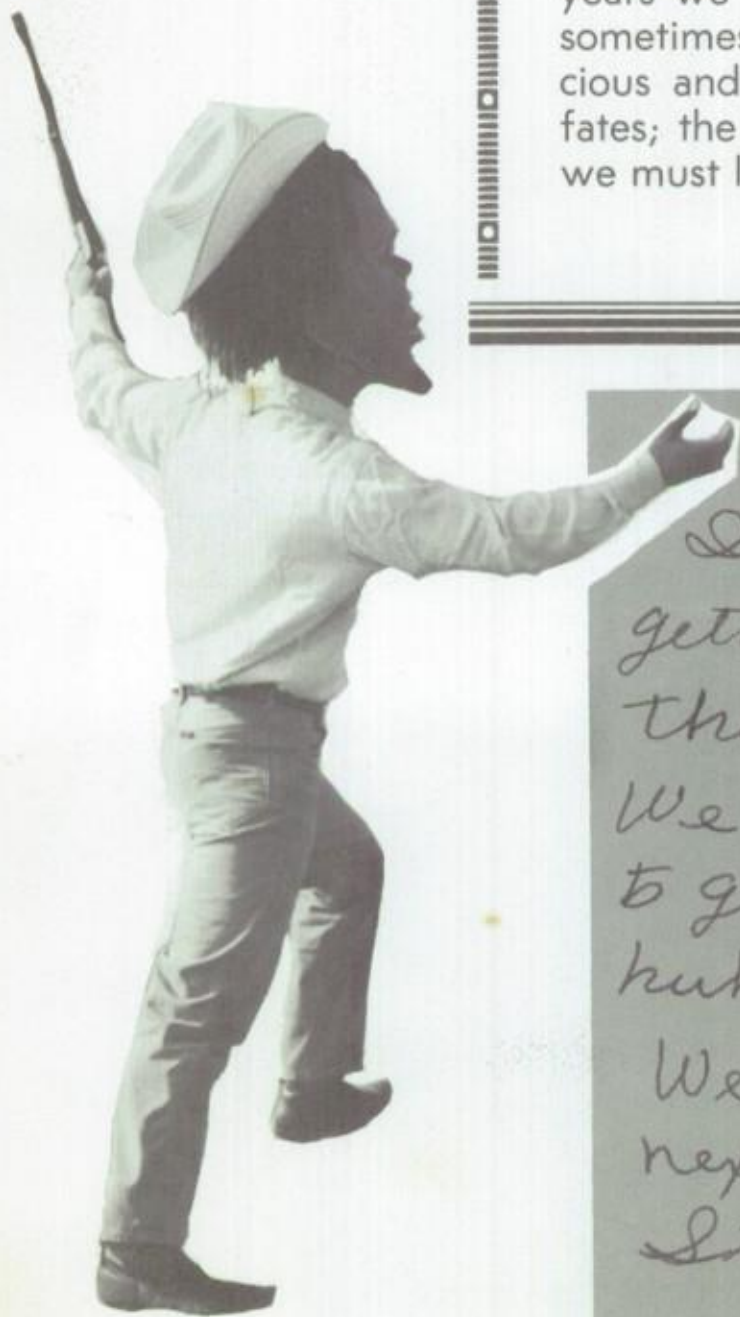 years we
sometimes
cious and
fates; the
we must
get
th
We
to g
We
nex